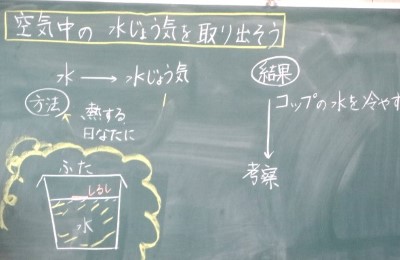 空気中の 水じょう気を 取り出そう
水 → 水じょう気
方法
熱する
日なたに
ふた
しるし
水
結果
コップの水を冷やす
考察